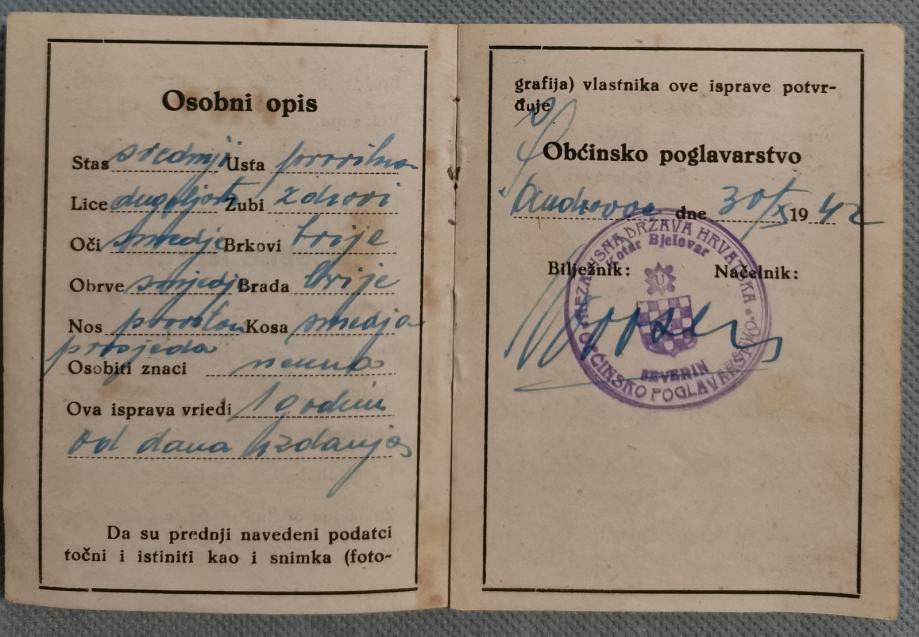 Osobni opis
Stas srednji Usta pravilna
Lice dugoljasto Zubi zdravi
Oči smedje Brkovi brije
Obrve smjedje Brada brije
Nos pravilan Kosa smedja
prosjeda
Osobiti znaci nema
Ova isprava vriedi 1 godinu
od dana izdanja
Da su prednji navedeni podatci
točni i istiniti kao i snimka (foto-
grafija) vlastnika ove isprave potvr-
đuje
Obćinsko poglavarstvo
dne 30/X 1942
Bilježnik: Načelnik:
NEZAVISNA DRŽAVA HRVATSKA
Kotar Bjelovar
U
SEVERIN
OBĆINSKO POGLAVARSTVO